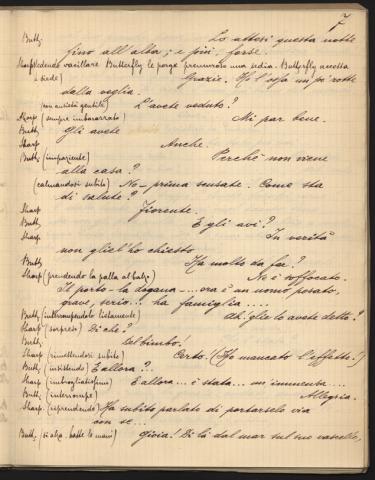 7
Butt. Lo attesi questa notte
fino all'alba; e poi, forse.
Sharp (vedendo vacillare Butterfly le porge premuroso una sedia. Butterfly accetta
e siede) Grazie. Ho l'ossa un po' rotte
dalla veglia.
(con ansietà gentile) L'avete veduto?
Sharp (sempre imbarazzato) Mi par bene.
Butt. Gli avete
Sharp Anche.
Butt. (impaziente) Perchè non viene
alla casa?
(calmandosi subito) No – prima scusate. Come sta
di salute?
Sharp Fiorente.
Butt. E gli avi?
Sharp In verità
non gliel'ho chiesto
Butt. Ha molto da far?
Sharp (prendendo la palla al balzo) Ne è soffocato.
Il porto – la dogana .... ora è un uomo posato,
grave, serio..: ha famiglia ....
Butt. (interrompendolo lietamente) Ah! glie lo avete detto?
Sharp (sorpreso) Di che?
Butt. Del bimbo!
Sharp (rimettendosi subito) Certo! (Ho mancato l'effetto!)
Butt. (insistendo) E allora?..
Sharp (imbrogliatissimo) E allora... è stata... un'immensa...
Butt. (interrompe) Allegria.
Sharp. (riprendendo) Ha subito parlato di portarselo via
con se...
Butt. (si alza, batte le mani) Gioia! Di là dal mar sul suo vascello,